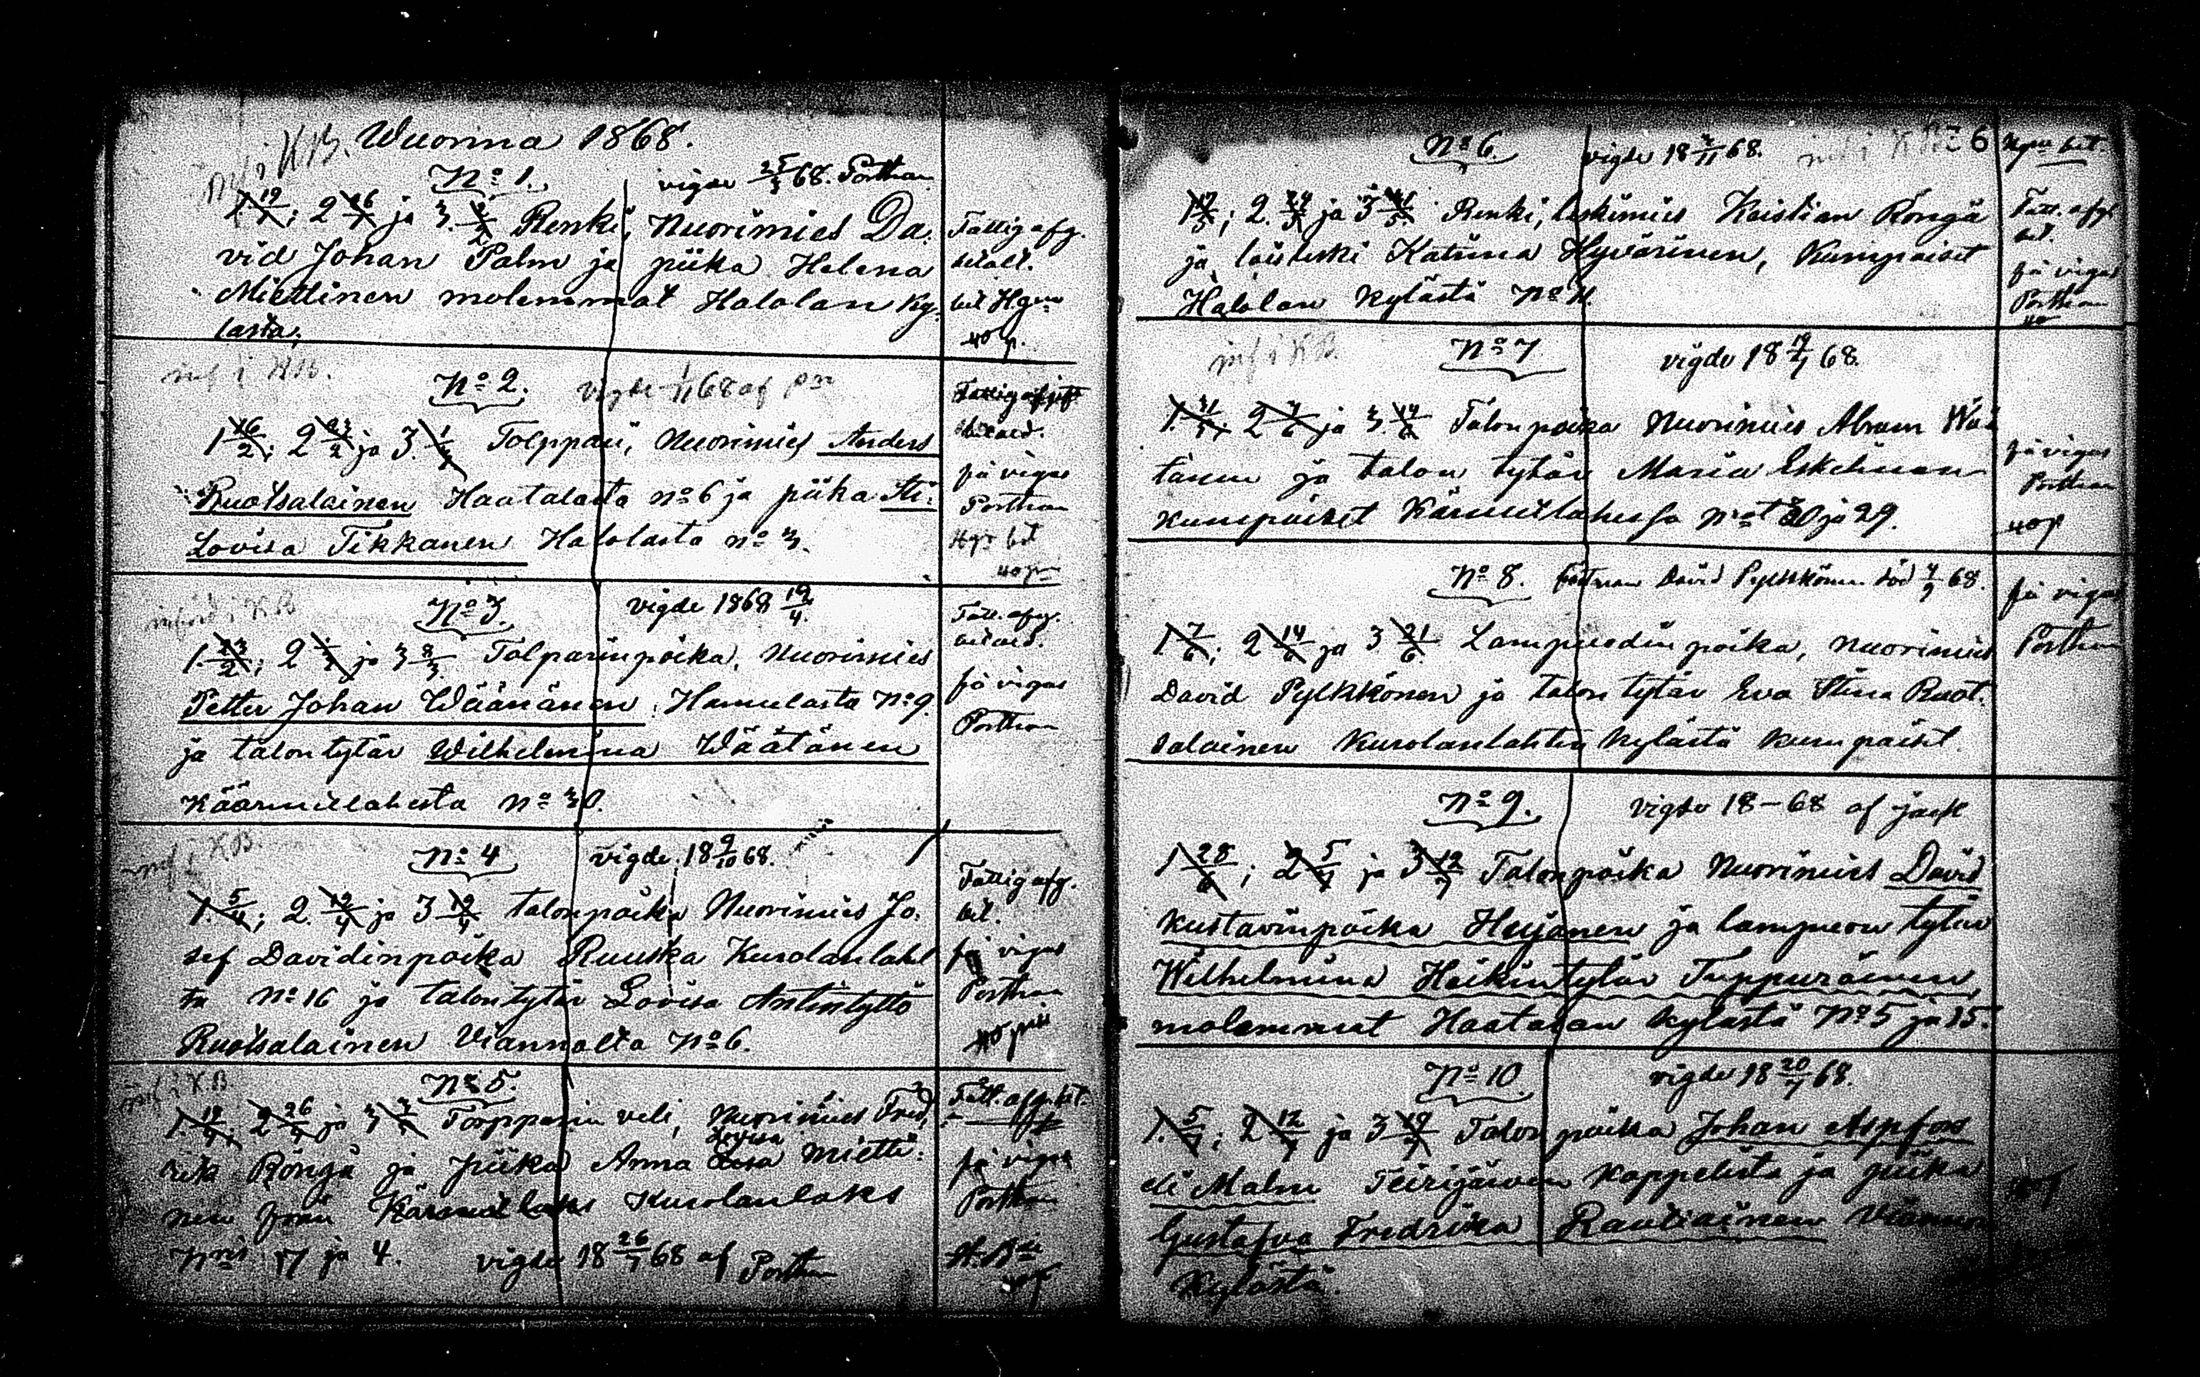 inf i KB. Wuonna 1868.
No 1. vigde 25/3 68. Porthan
1. 19/1; 2 26/1 ja 3. 2/2 Renki, Nuorimies Da-
vid Johan Palm ja piika Helena
Miettinen molemmat Halolan ky-
lästä;
Fattig afg.
betalt.
bet Hgn
40 p.
inf i KB.
No 2. vigde 1/11 68 af
1 16/2; 2 23/2 ja 3. 1/3 Torppari, Nuorimies Anders
Ruotsalainen Haatalasta no 6 ja piika
Lovisa Tikkanen Halolasta no 3.
Fattig afgift
betald.
få vigas
Porthan
bet
40 p
införd i KB
No 3. vigde 1868 19/4.
1. 23/2; 2 1/3 ja 3 8/3 Torparinpoika, Nuorimies
Petter Johan Wäänänen Hamulasta No 9.
ja talon tytär Wilhelmina Wäätänen
Käärmelahesta No 30.
Fatt. afg.
betald.
få vigas
Porthan
inf i KB.
No 4 vigde 18 9/10 68.
1. 5/4; 2. 12/4 ja 3 19/4 talonpoika Nuorimies Jo-
sef Davidinpoika Ruuska Kurolanlahl
ta No 16 ja talon tytär Lovisa Antintyttö
Ruotsalainen Viannalta No 6.
Fattig afg.
bet.
få vigas
Porthan
40 pni
inf i KB.
No 5.
1. 19/4; 2 26/4 ja 3 3/5 Torpparin veli, Nuorimies Fred-
rik Röngä ja piika Anna Lovisa Mietti-
nen från Käärmelaks Kurolanlaks
Nris 17 ja 4. vigde 18 26/7 68 af Porthan
Fatt. afg. bet.
få vigas
Porthan
No 6. vigde 18 1/11 68. inf i KB 6
bet.
3; 2. 24/5 ja 3 31/5 Renki, leskimies Kristian Röngä
ja loisleski Katrina Hyvärinen, Kumpaiset
Halolan kylästä No 11
Fatt. afg.
bet.
få vigas
Porthan
inf i KB.
No 7 vigde 18 19/7 68.
1. 31/5, 2 7/6 ja 3. 14/6 Talonpoika Nuorimies Abram Wää
tänen ja talon tytär Maria Eskelinen
kumpaiset Käärmelahessa No 30 ja 29.
få vigas
Porthan
40 p
No 8. fästman David Pylkkönen död 4/7 68.
1 7/6; 2 14/6 ja 3 21/6 Lampuodin poika, nuorimies
David Pylkkönen ja talon tytär Eva Stina Ruot-
salainen Kurolanlahtis kylästä kumpaiset.
få vigas
Porthan
No 9. vigde 18 – 68 af
1 28/6; 2 5/7 ja 3 12/7 Talonpoika Nuorimies David
Kustavinpoika Heijonen ja lampuou tytär
Wilhelmina Heikintytär Tuppurainen,
molemmat Haatalan kylästä No 5 ja 15.
No 10 vigde 18 20/7 68.
1. 5/7; 2 12/7 ja 3 19/7 Talonpoika Johan Aspfors
eli Malm Teirijärven kappelista ja piika
Gustafva Fredrika Rautiainen Viannon
Kylästä.